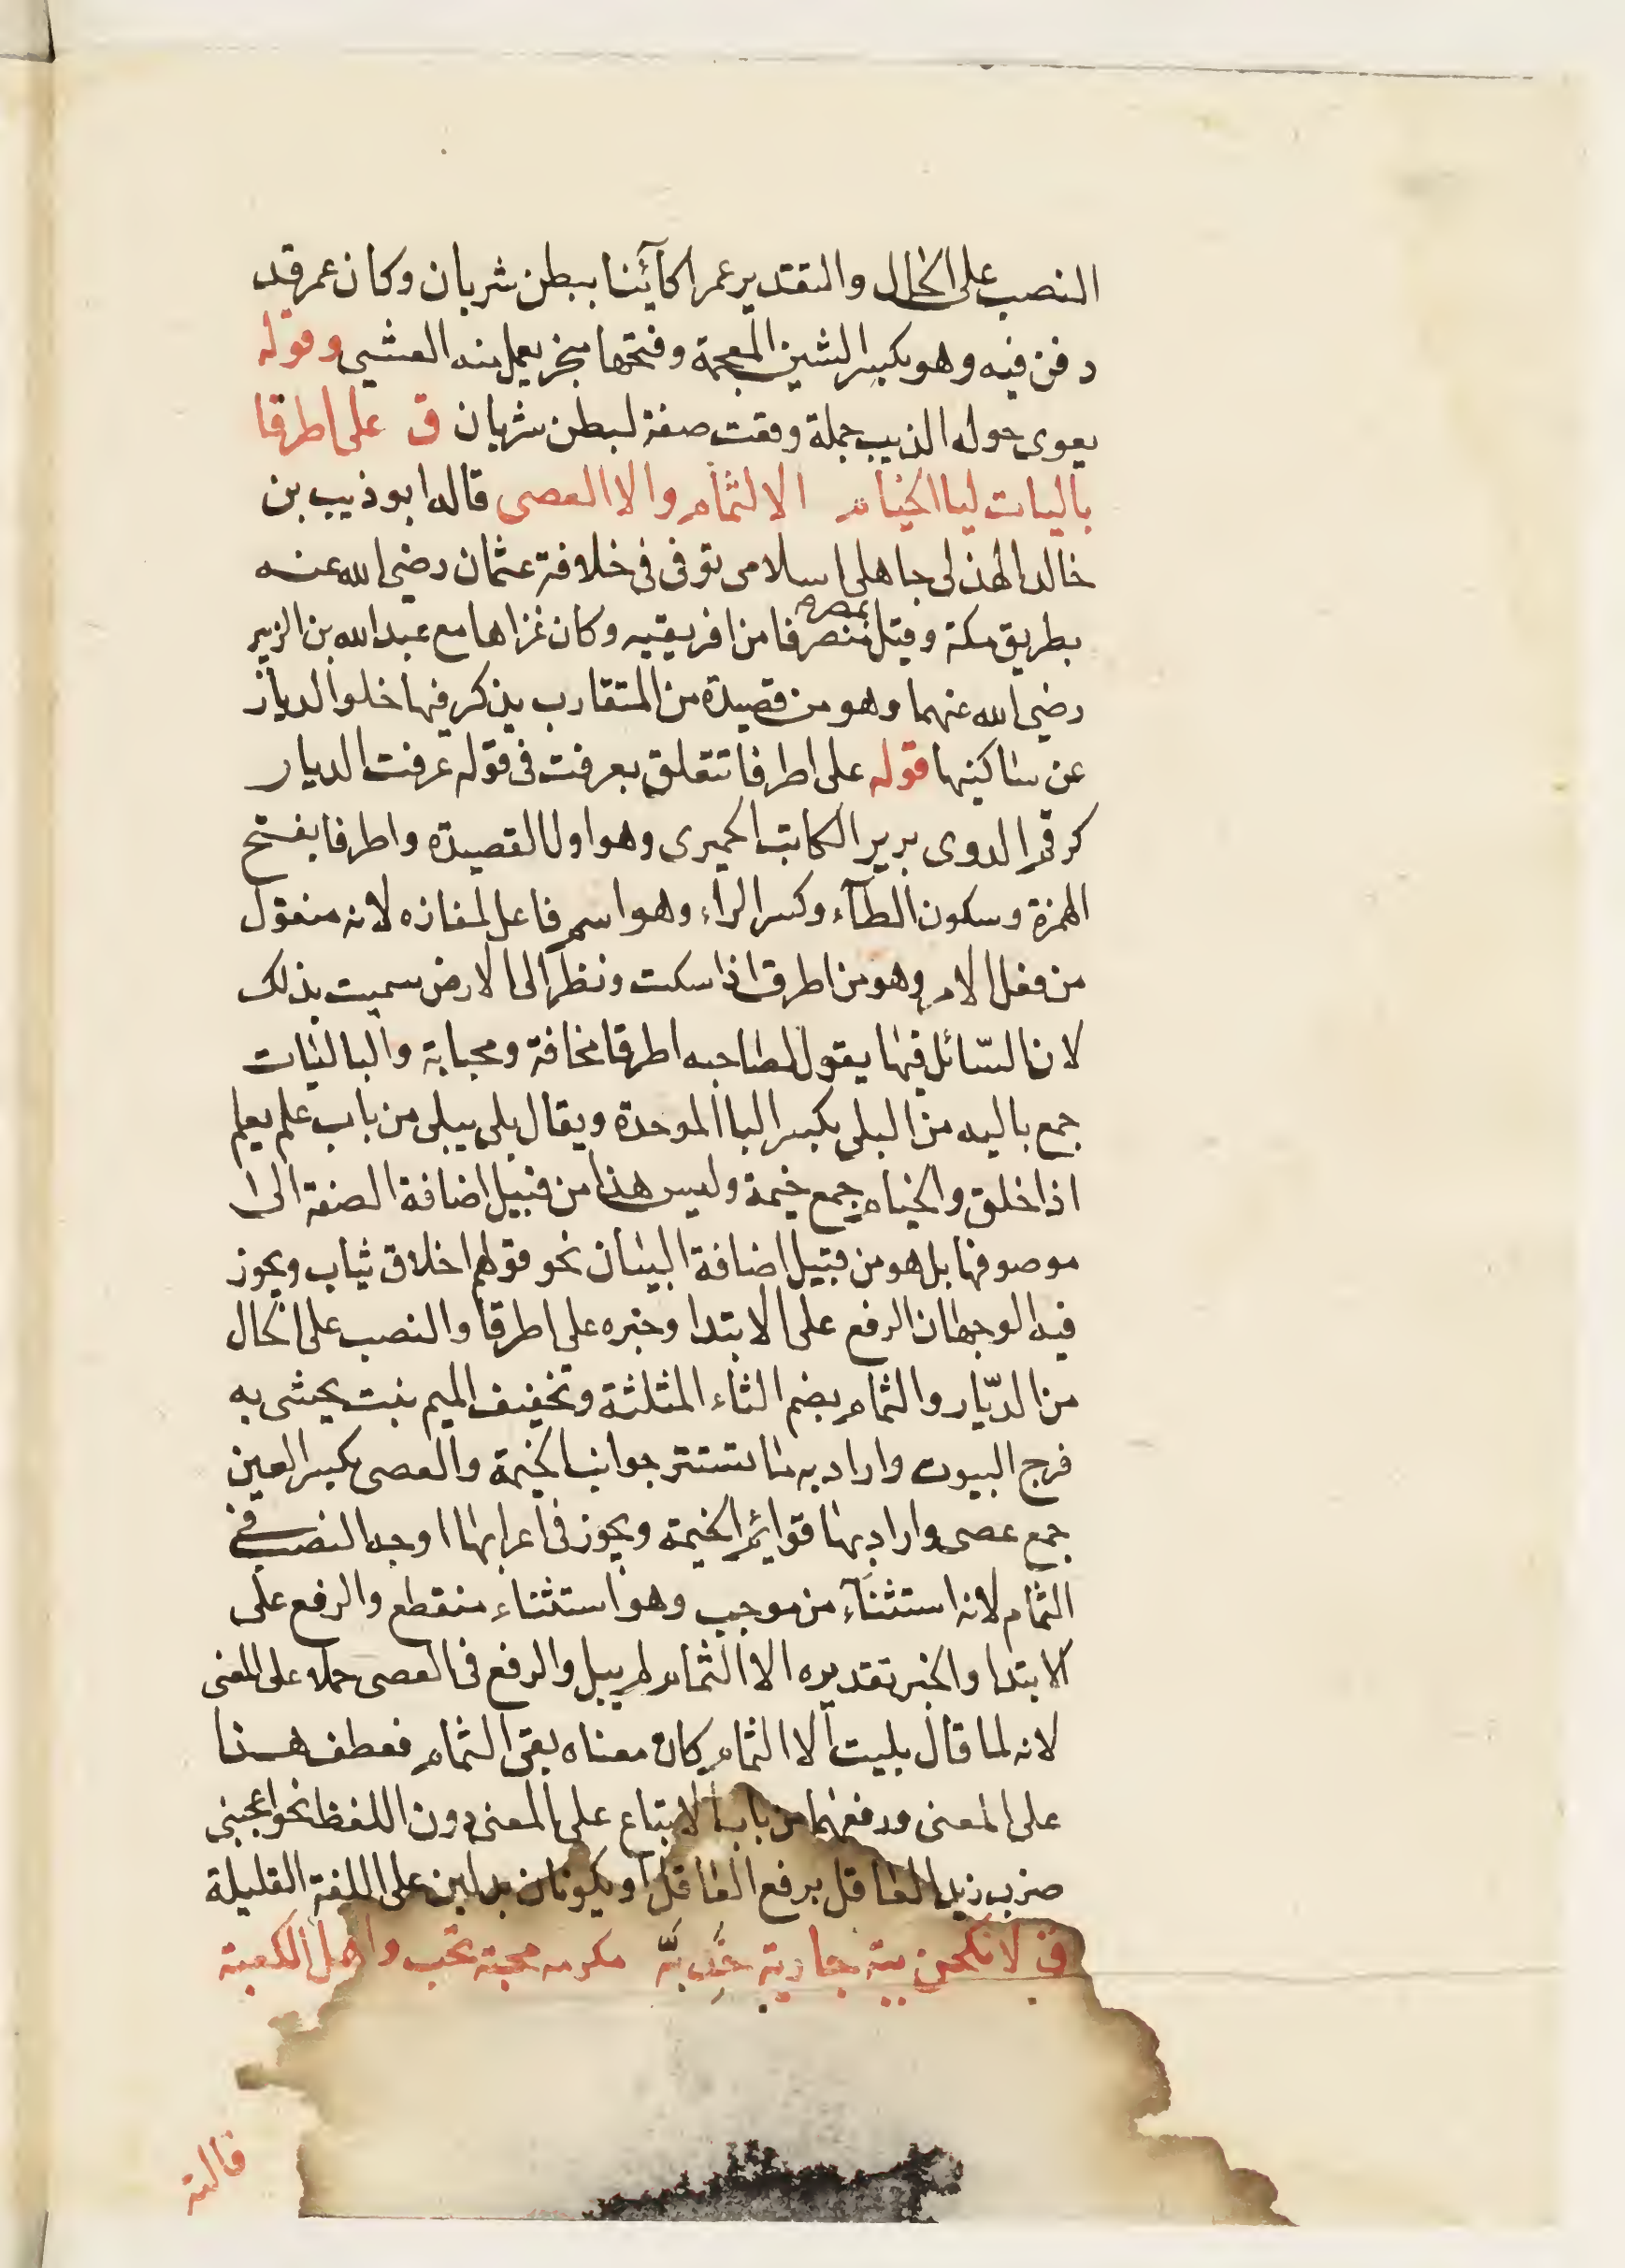 النصب على الحال والتقدير عمرا كآئنا ببطن شريان وكان عمر قد
دفن فيه وهو بكسر الشين المعجمة وفتحها شجر يعمل منه القسى وقوله
يعوى حوله الذيب جملة وقعت صفة لبطن شريان ق على اطرقا
باليات ليا الخيام الا الثمام والا العصى قاله ابو ذيب بن
خالد الهذلى جاهلى اسلامى توفى فى خلافة عثمان رضى الله عنه
بطريق مكة وقيل بمصر منصرفا من افريقيه وكان غزاها مع عبد الله بن الزبير
رضى الله عنهما وهو من قصيدة من المتقارب يذكر فيها خلو الديار
عن ساكنيها قوله على اطرقا تتعلق بعرفت فى قوله عرفت الديار
كرقم الدوى برير الكاتب الحميرى وهو اول القصيدة واطرقا بفتح
الهمزة وسكون الطآء وكسر الراء وهو اسم فاعل لمفازه لانه منقول
من فعل الامر وهو من اطرق اذا سكت ونظر الى الارض سميت بذلك
لان السّائل فيها يقول لصاحبه اطرقا مخافة ومهابة والباليات
جمع باليه من البلى بكسر البا الموحدة ويقال بلى يبلى من باب علم يعلم
اذا خلق والخيام جمع خيمة وليس هذا من قبيل اضافة الصفة الى
موصوفها بل هو من قبيل اضافة البيان نحو قولهم اخلاق ثياب ويجوز
فيه الوجهان الرفع على الابتدا وخبره على اطرقا والنصب على الحال
من الدّيار والثمام بضم الثاء المثلثة وتخفيف الميم نبت يحشى به
فرج البيوت واراد به ما يستتر جوانب الخيمة والعصى بكسر العين
جمع عصى واراد بها قوائم الخيمة ويجوز فى اعرابها اوجه النصب فى
الثمام لانه استثنآء من موجب وهو استثناء منقطع والرفع على
الابتدا والخبر تقديره الا الثمام لم يبل والرفع فى العصى حملا على المعنى
لانه لما قال بليت الا الثمام كان معناه بقى الثمام فعطف هذا
على المعنى ورفعهما من باب الاتباع على المعنى دون اللفظ نحو اعجبنى
ضرب زيد العاقل برفع العاقل او يكونان بدلين على اللغة القليلة
ق لانكحن ببه جارية خِدَبَّه مكرمه محبة تجب واهل الكعبة
قالته